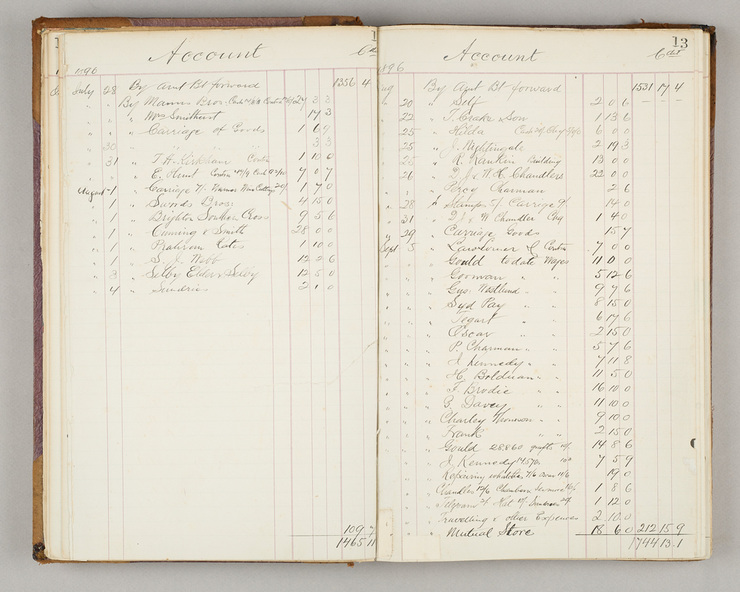 Account
1896
July 28 By Amt Bt forward 1356 4
By Manns Bros 3 3
" Wm Smithurst 17 3
" Carriage of Goods 1 6 9
30 " " " 3 3
31 " T. H. Kirkham Contra 1 10 0
" E. Hunt Contra 7 0 7
August 1 Carriage 1 7 0
" 1 " Swords Bros. 4 15 0
" 1 " Brighton Southern Cross 9 5 6
" 1 " Cuming & Smith 28 0 0
" 1 " Rates 1 10 0
" 1 " S. J. Webb 12 2 6
" 3 " Selby Elder & Selby 12 5 0
" 4 " Sundries 2 1 0
109 7
1465 11
13
Account Cdt
1896
Aug By Amt Bt forward 1531 17 4
" 20 " Self 2 0 6
" 22 " T. Crake & Son 1 13 6
" 25 " Hilda 6 0 0
" 25 " J. Nightingale 2 19 3
" 25 " R. Rankin Building 13 0 0
" 26 " D. J. & W. H. Chandlers 22 0 0
" " Percy Charman 2 6
" 28 " Stamps 5/ Carriage 9/ 14 0
" 31 " D. J. & W Chandler Coy 1 4 0
" 29 " Carriage Goods 15 7
Sept 5 " Contra 7 0 0
" " Gould to date Wages 11 0 0
" " Gorman " " 5 12 6
" " Geo. Westlund " " 9 7 6
" " Syd Pay " " 8 15 0
" " Tegart " " 6 17 6
" " Oscar " " 2 15 0
" " P. Charman " " 5 7 6
" " J. Kennedy " " 7 11 8
" " H. Boldman " " 11 5 0
" " F. Brodie " " 16 10 0
" " B. Davey " " 11 10 0
" " Charley Thoneman " " 9 10 0
" " Frank " " 2 15 0
" " Gould 28860 14 8 6
" " J. Kennedy 14570 7 5 9
" " Repairing 19 0
Chandler 1 8 6
Telegrams 2/ Hat 1 12 0
Travelling & other Expenses 2 10 0
" Mutual Store 18 6 0 212 15 9
1744 13 1